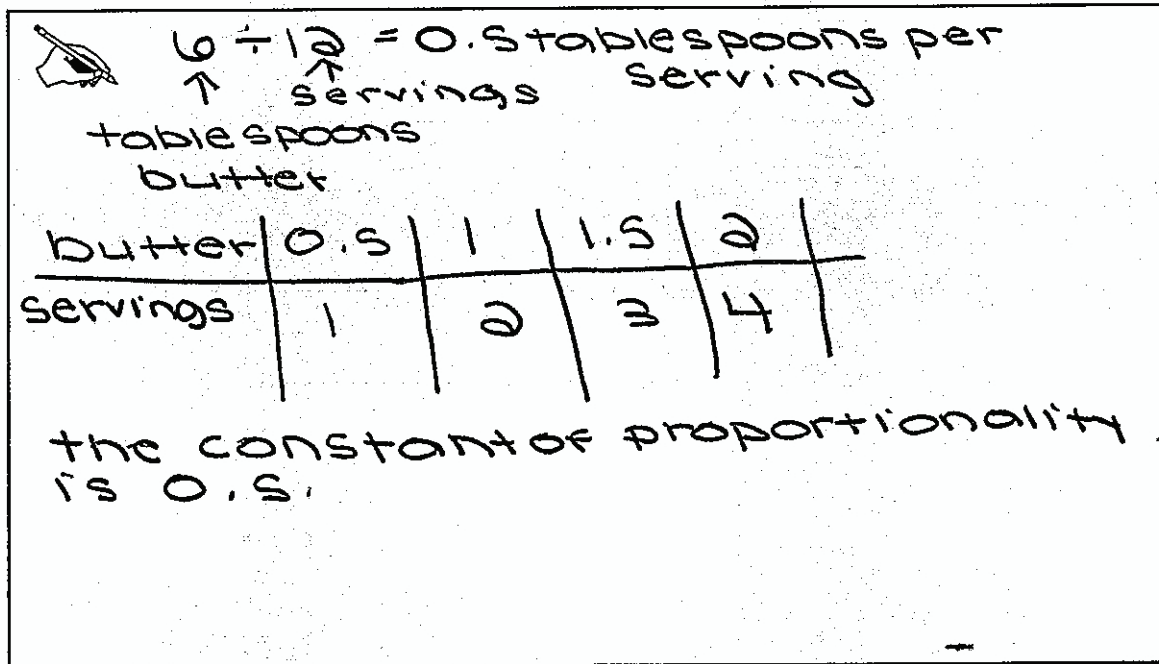 6 ÷ 12 = 0.5 tablespoons per
serving
↑ ↑
servings
tablespoons
butter
butter | 0.5 | 1 | 1.5 | 2 |
servings | 1 | 2 | 3 | 4 |
the constant of proportionality
is 0.5.